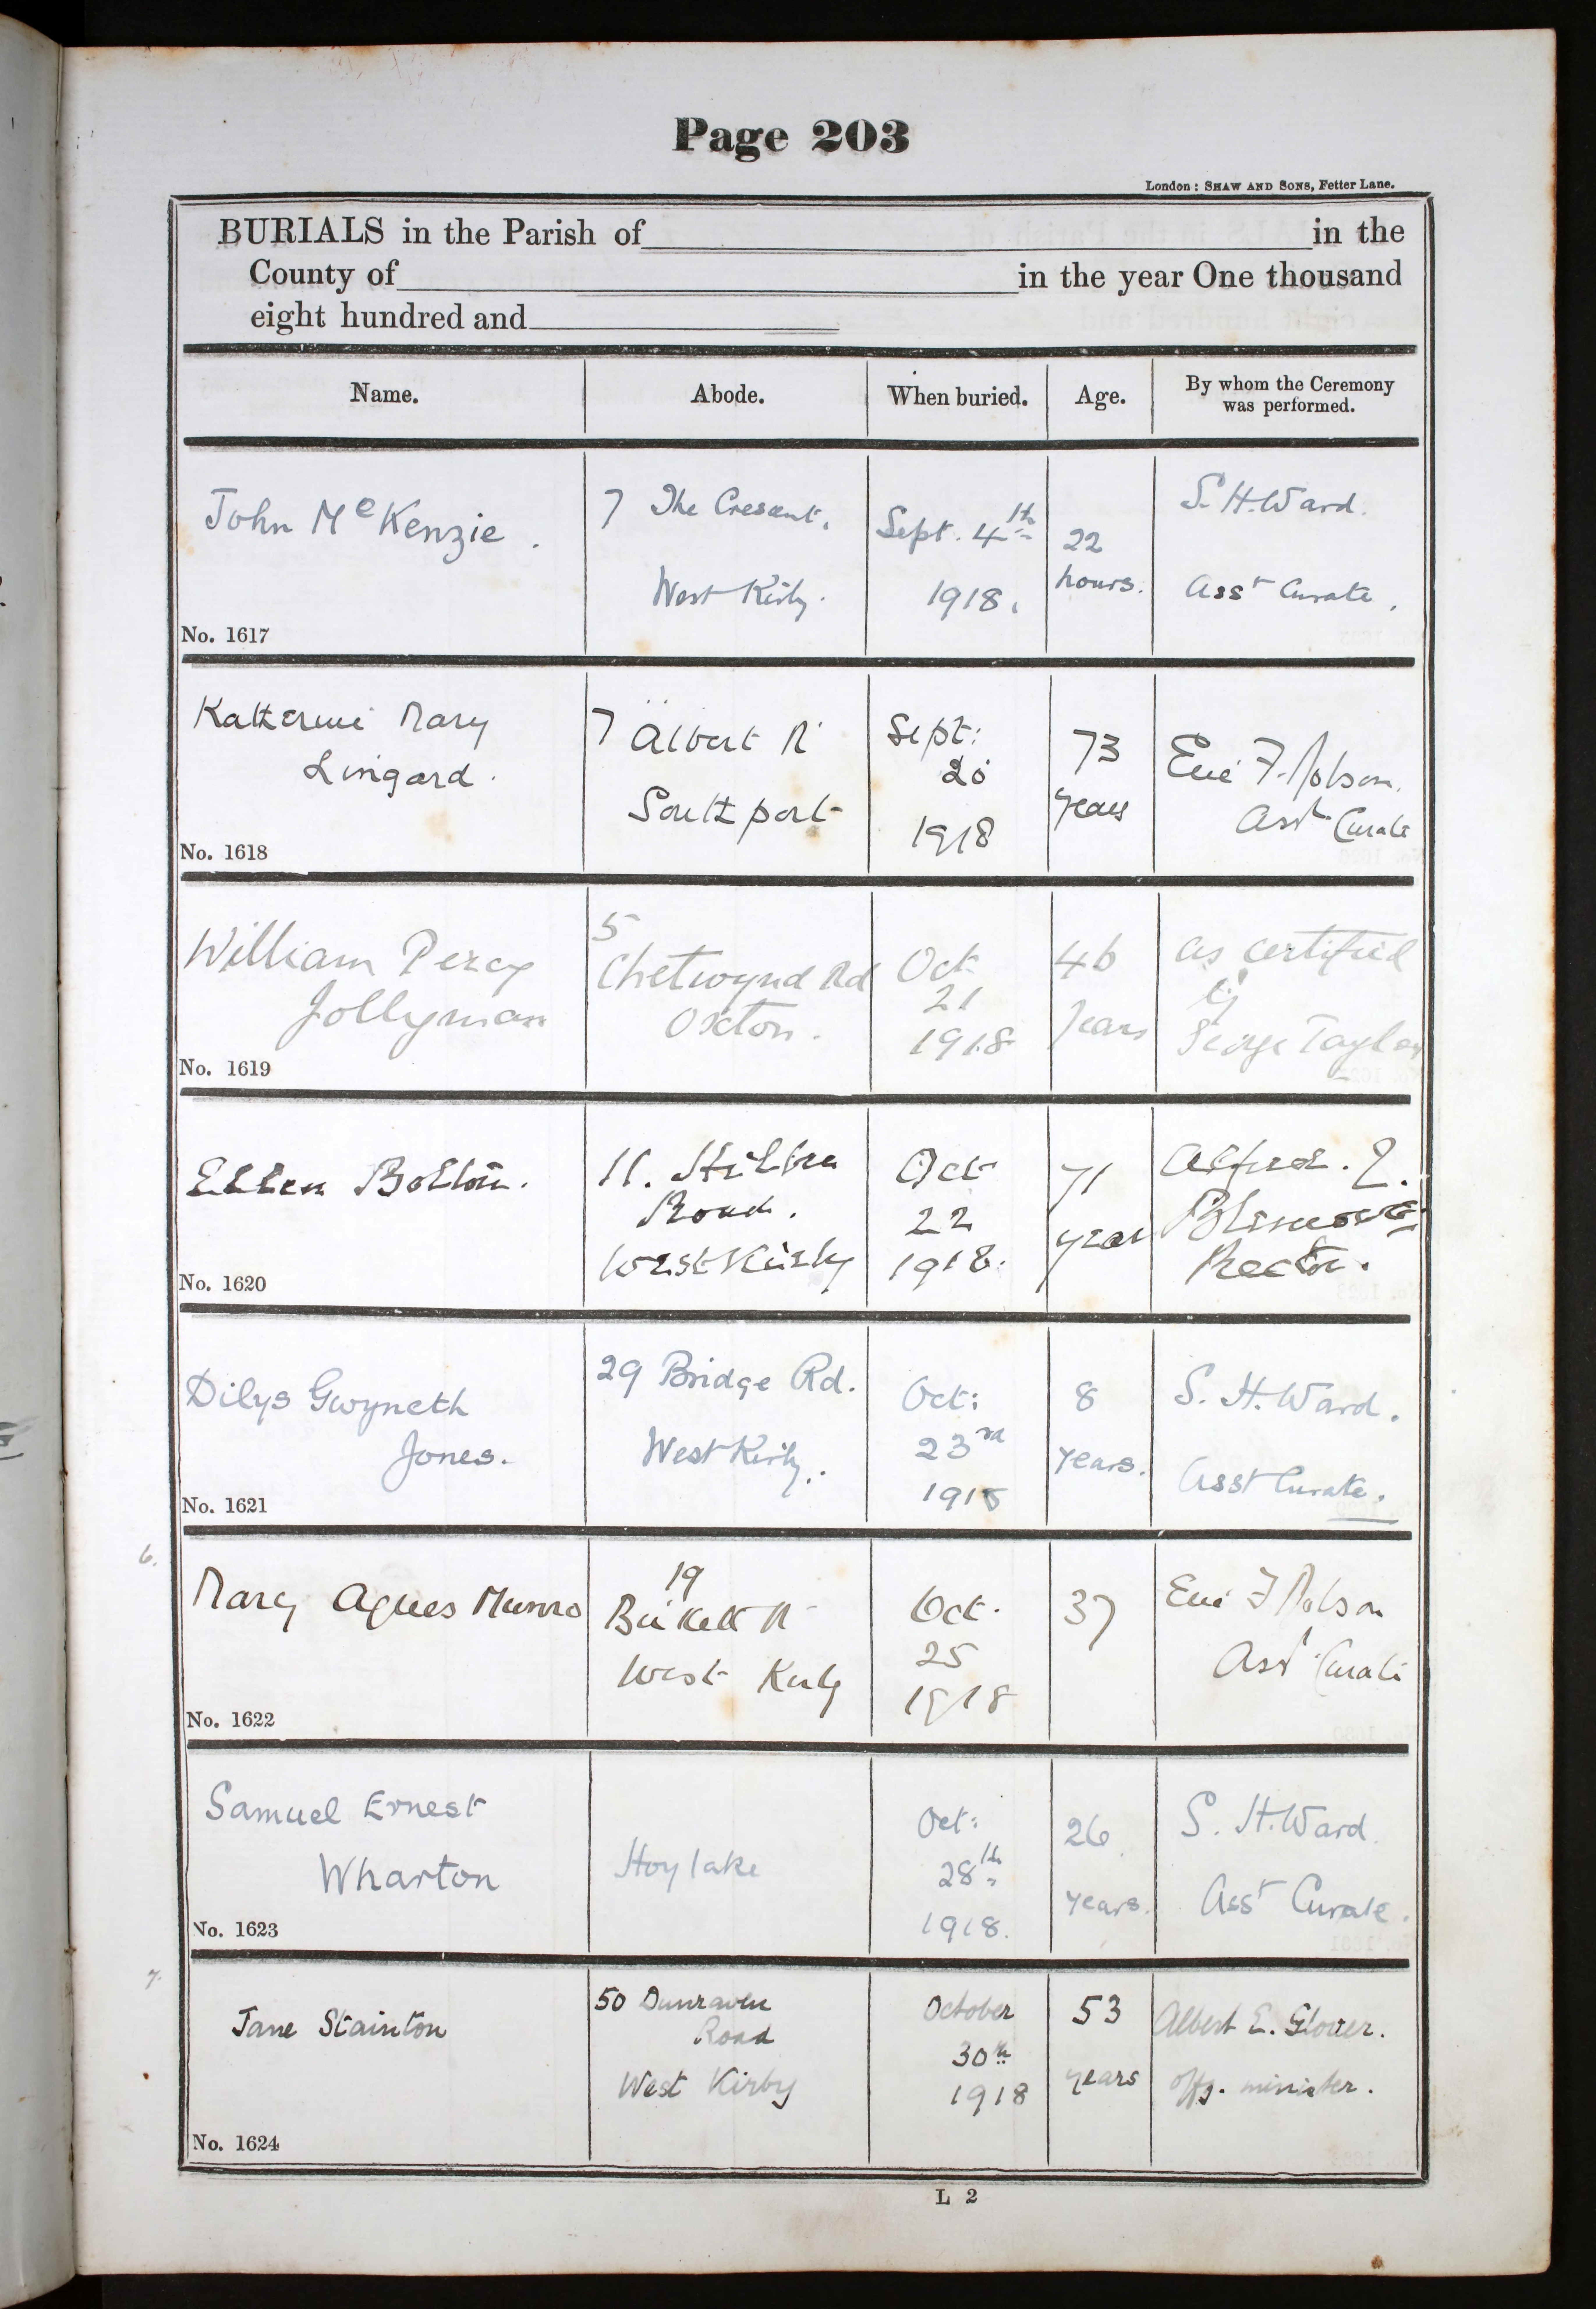 Page 203
London: SHAW AND SONS, Fetter Lane.
BURIALS in the Parish of in the
County of in the year One thousand
eight hundred and
Name. Abode. When buried. Age. By whom the Ceremony was performed.
John McKenzie.
7 The Crescent.
West Kirby.
Sept. 4th
1918.
22
hours.
S. H. Ward.
Asst Curate.
No. 1617
Katherine Mary
Lingard.
7 Albert Rd
Southport
Sept:
20
1918
73
years
Eric F. Robson.
Asst Curate
No. 1618
William Percy
Jollyman
5
Chetwynd Rd
Oxton.
Oct
21
1918
46
Years
as certified
by
George Taylor
No. 1619
Ellen Bolton.
11. Hilbre
Road.
West Kirby
Oct
22
1918.
71
year
Alfred.
Rector.
No. 1620
Dilys Gwyneth
Jones.
29 Bridge Rd.
West Kirby.
Oct:
23rd
1918
8
years.
S. H. Ward.
Asst Curate.
No. 1621
6.
Mary Agnes Munro
19
Birkett Rd
West Kirby
Oct.
25
1918
37
Eric F Robson
Asst Curate
No. 1622
Samuel Ernest
Wharton
Hoylake
Oct:
28th
1918.
26
years.
S. H. Ward.
Asst Curate.
No. 1623
7.
Jane Stainton
50 Dunraven
Road
West Kirby
October
30th
1918
53
years
Albert E. Glover.
offg. minister.
No. 1624
L 2